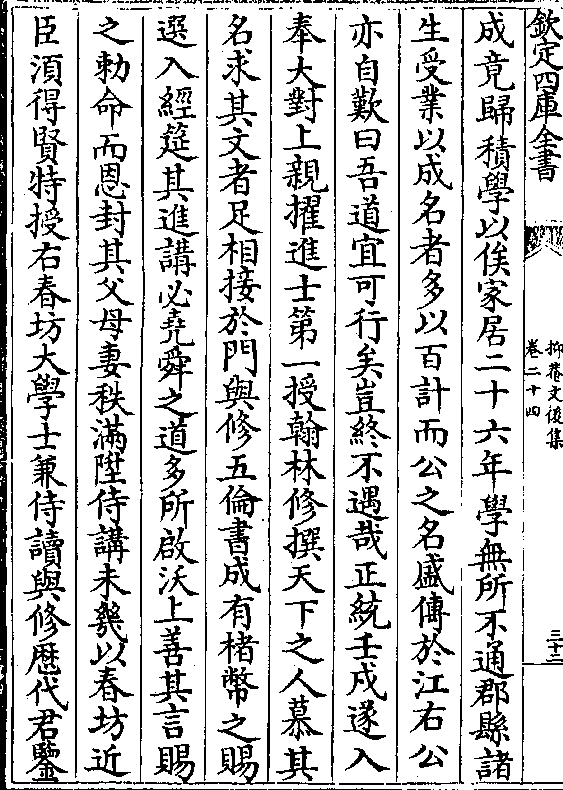 欽定四庫全書
抑菴文後集
卷二十四
三十二
成竟歸積學以俟家居二十六年學無所不通郡縣諸
生受業以成名者多以百計而公之名盛傳於江右公
亦自歎曰吾道宜可行矣豈終不遇哉正統壬戌遂入
奉大對上親擢進士第一授翰林修撰天下之人慕其
名求其文者足相接於門與修五倫書成有楮幣之賜
選入經筵其進講必堯舜之道多所啟沃上善其言賜
之勅命而恩封其父母妻秩滿陞侍講未幾以春坊近
臣須得賢特授右春坊大學士兼侍讀與修歴代君鑒